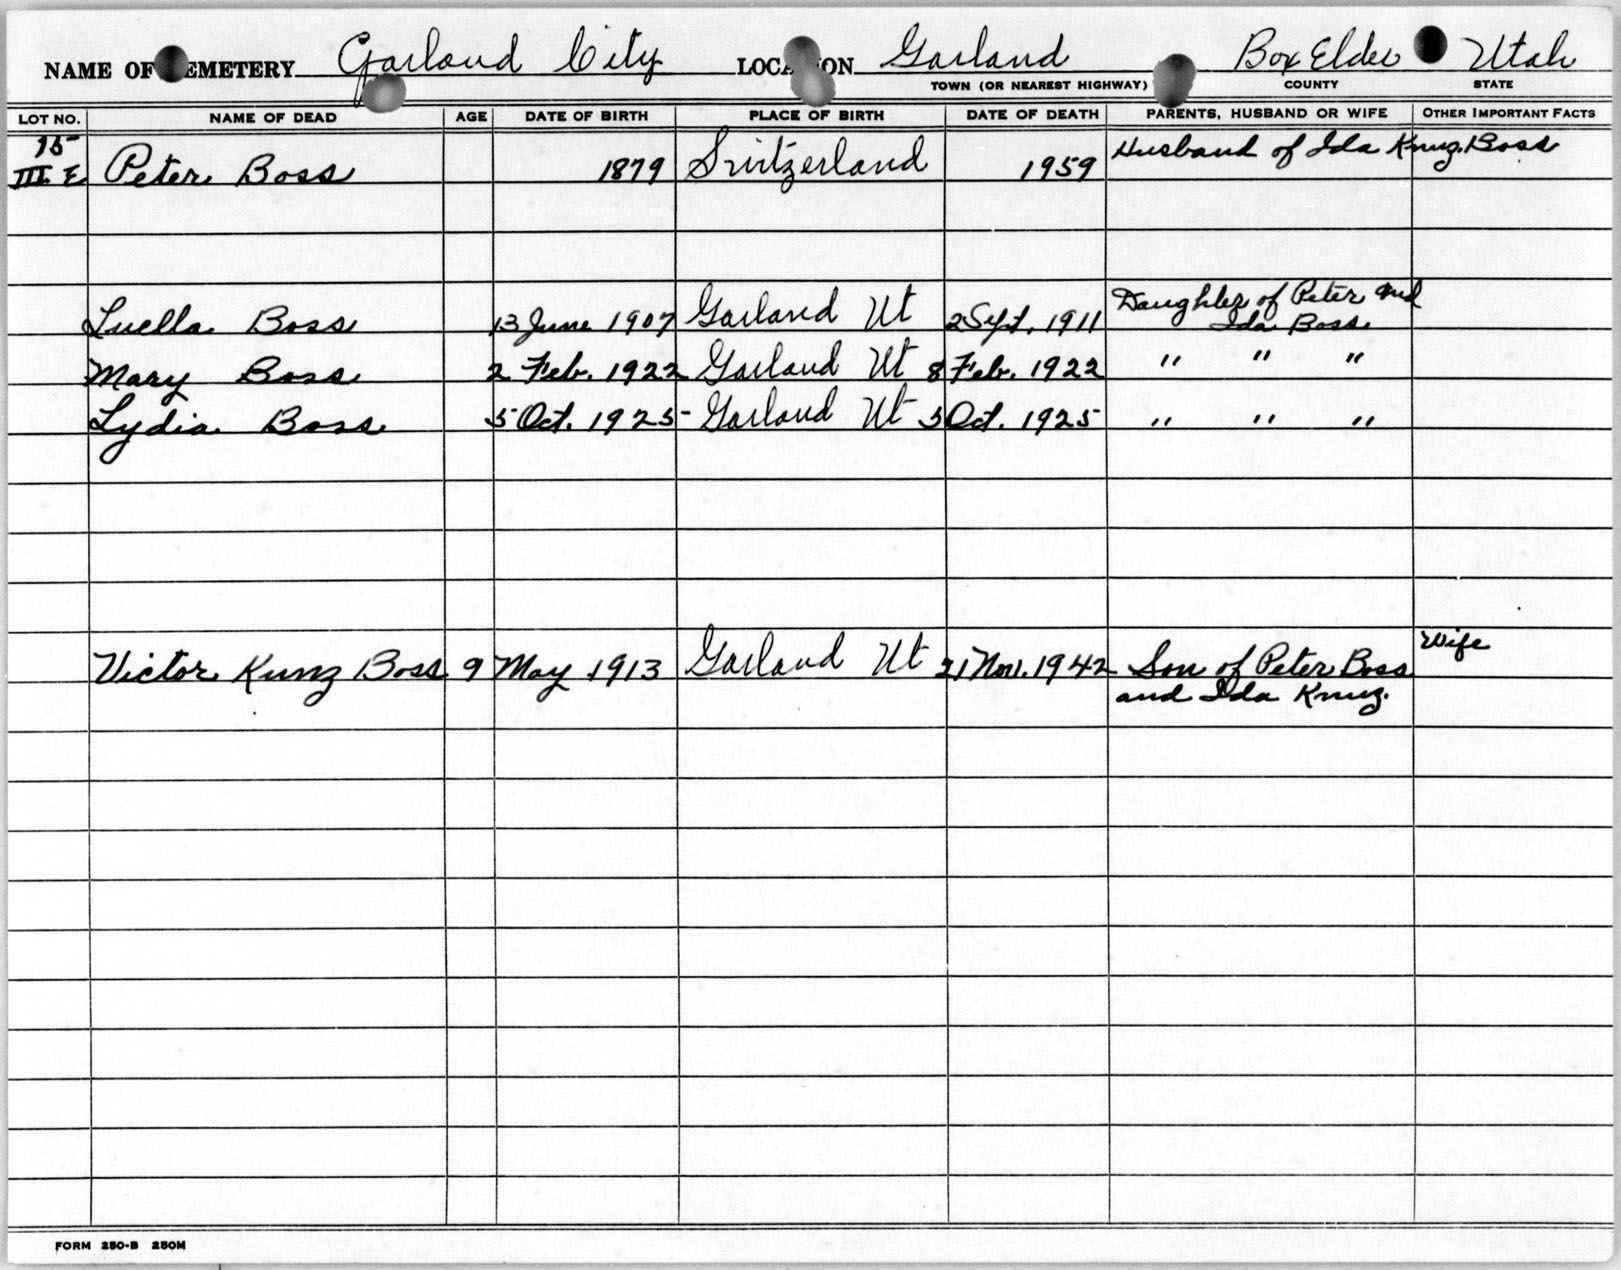 NAME OF CEMETERY Garland City LOCATION Garland Box Elder Utah
TOWN (OR NEAREST HIGHWAY) COUNTY STATE
LOT NO. NAME OF DEAD AGE DATE OF BIRTH PLACE OF BIRTH DATE OF DEATH PARENTS, HUSBAND OR WIFE OTHER IMPORTANT FACTS
15
III E Peter Boss 1879 Switzerland 1959 Husband of Ida Kunz Boss
Luella Boss 13 June 1907 Garland Ut 2 Sept. 1911 Daughter of Peter and
Ida Boss
Mary Boss 2 Feb. 1922 Garland Ut 8 Feb. 1922 " " "
Lydia Boss 5 Oct. 1925 Garland Ut 5 Oct. 1925 " " "
Wife
Victor Kunz Boss 9 May 1913 Garland Ut 21 Nov. 1942 Son of Peter Boss
and Ida Kunz.
FORM 250-B 250M